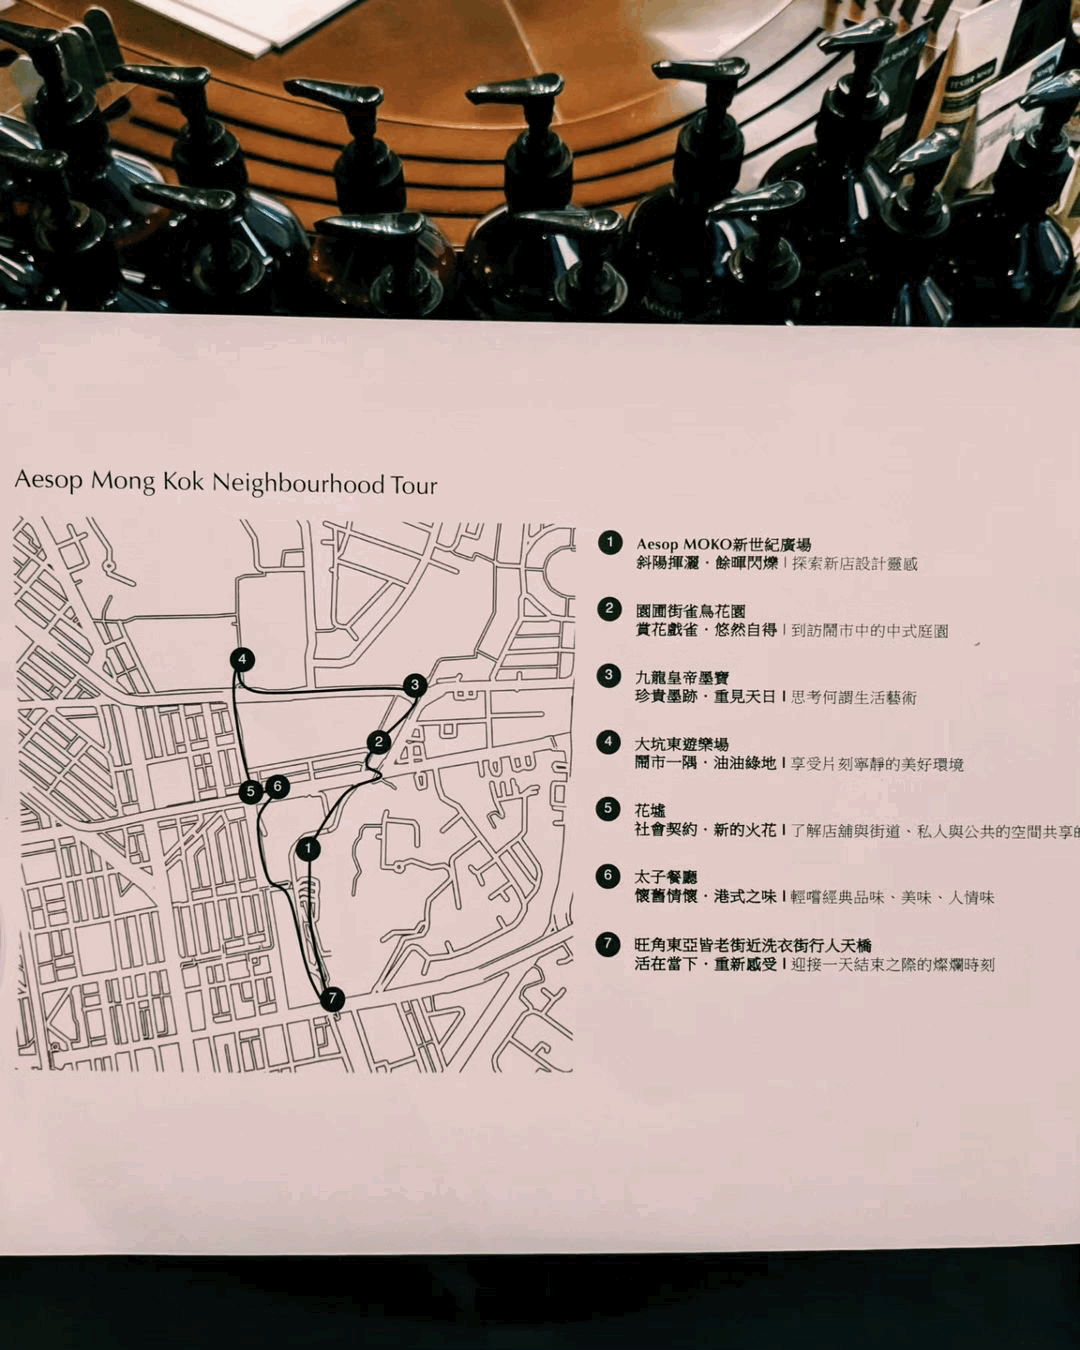 Aesop Mong Kok Neighbourhood Tour
1 Aesop MOKO新世紀廣場
斜陽揮灑・餘暉閃爍 | 探索新店設計靈感
2 園圃街雀鳥花園
賞花戲雀・悠然自得 | 到訪鬧市中的中式庭園
3 九龍皇帝墨寶
珍貴墨跡・重見天日 | 思考何謂生活藝術
4 大坑東遊樂場
鬧市一隅・油油綠地 | 享受片刻寧靜的美好環境
5 花墟
社會契約・新的火花 | 了解店舖與街道、私人與公共的空間共享的
6 太子餐廳
懷舊情懷・港式之味 | 輕嚐經典品味、美味、人情味
7 旺角東亞皆老街近洗衣街行人天橋
活在當下・重新感受 | 迎接一天結束之際的燦爛時刻
4
3
2
5
6
1
7